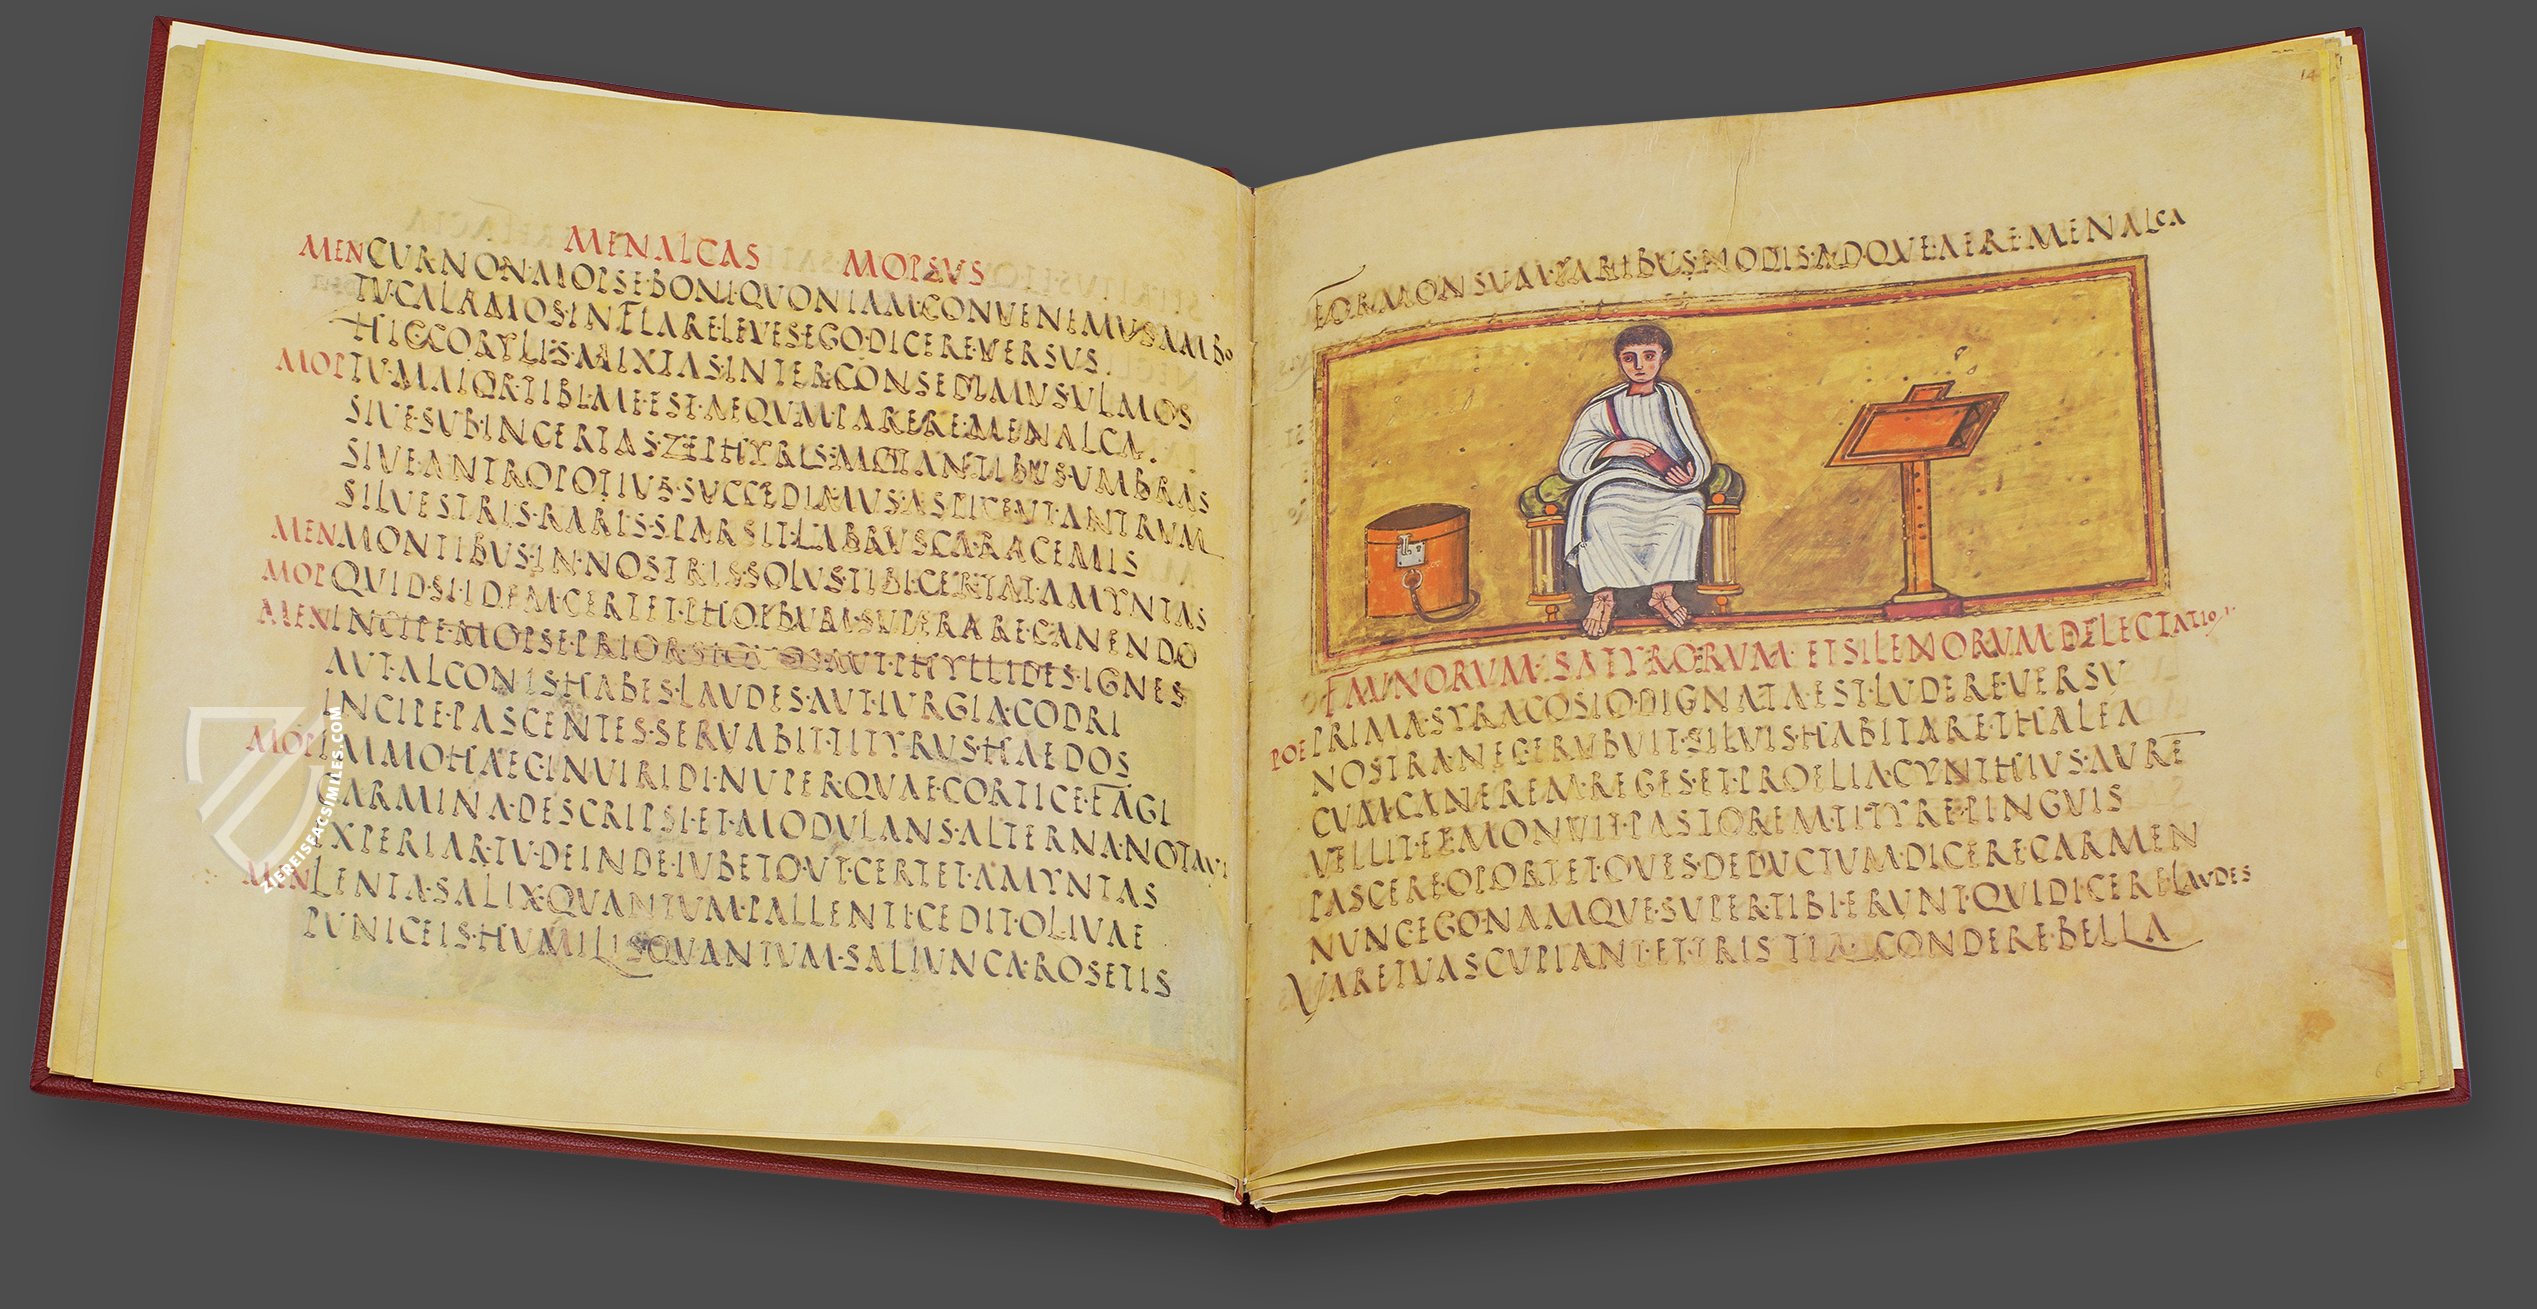 MENALCAS MOPSVS
MEN CVR·NON·MOPSE·BONI·QVONIAM·CONVENIMVS·AMBO
TV·CALAMOS·INFLARE·LEVES·EGO·DICERE·VERSVS
HIC·CORYLIS·MIXTAS·INTER·CONSEDIMVS·VLMOS
MOP TV·MAIOR·TIBI·ME·EST·AEQVM·PARERE·MENALCA
SIVE·SVB·INCERTAS·ZEPHYRIS·MOTANTIBVS·VMBRAS
SIVE·ANTRO·POTIVS·SVCCEDIMVS·ASPICE·VT·ANTRVM
SILVESTRIS·RARIS·SPARSIT·LABRVSCA·RACEMIS
MEN MONTIBVS·IN·NOSTRIS·SOLVS·TIBI·CERTAT·AMYNTAS
MOP QVID·SI·IDEM·CERTET·PHOEBVM·SVPERARE·CANENDO
MEN INCIPE·MOPSE·PRIOR·SI AVT·PHYLLIDES·IGNES
AVT·ALCONIS·HABES·LAVDES·AVT·IVRGIA·CODRI
INCIPE·PASCENTES·SERVABIT·TITYRVS·HAEDOS
MOP IMMO·HAEC·IN·VIRIDI·NVPER·QVAE·CORTICE·FAGI
CARMINA·DESCRIPSI·ET·MODVLANS·ALTERNA·NOTAVI
EXPERIAR·TV·DEINDE·IVBETO·VT·CERTET·AMYNTAS
MEN LENTA·SALIX·QVANTVM·PALLENTI·CEDIT·OLIVAE
PVNICEIS·HVMILIS·QVANTVM·SALIVNCA·ROSETIS
ZEREISFACSIMILES.COM
14
FORMONSVM·PARIBVS·NODIS·ADQVE·AERE·MENALCA
FAVNORVM·SATYRORVM ET SILENORVM DELECTATIO
POE PRIMA·SYRACOSIO·DIGNATA·EST·LVDERE·VERSV
NOSTRA·NEC·ERVBVIT·SILVIS·HABITARE·THALEA
CVM·CANEREM·REGES·ET·PROELIA·CYNTHIVS·AVRE
VELLIT·ET·MONVIT·PASTOREM·TITYRE·PINGVIS
PASCERE·OPORTET·OVES·DEDVCTVM·DICERE·CARMEN
NVNC·EGO·NAMQVE·SVPER·TIBI·ERVNT·QVI·DICERE·LAVDES
VARE·TVAS·CVPIANT·ET·TRISTIA·CONDERE·BELLA